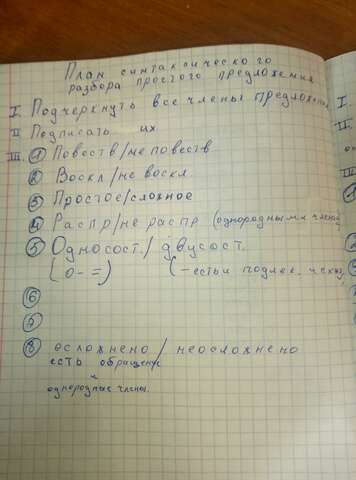 План синтаксического
разбора простого предложения
I. Подчеркнуть все члены предложения
II Подписать их
III. 1 Повеств/неповеств
2 Воскл/не воскл
3 Простое/сложное
4 Распр/не распр (однородными член
5 Односост./двусост.
(о- =) (-есть и подлеж, и сказ
6
7
8 осложнено / неосложнено
есть обращение
и
однородные члены